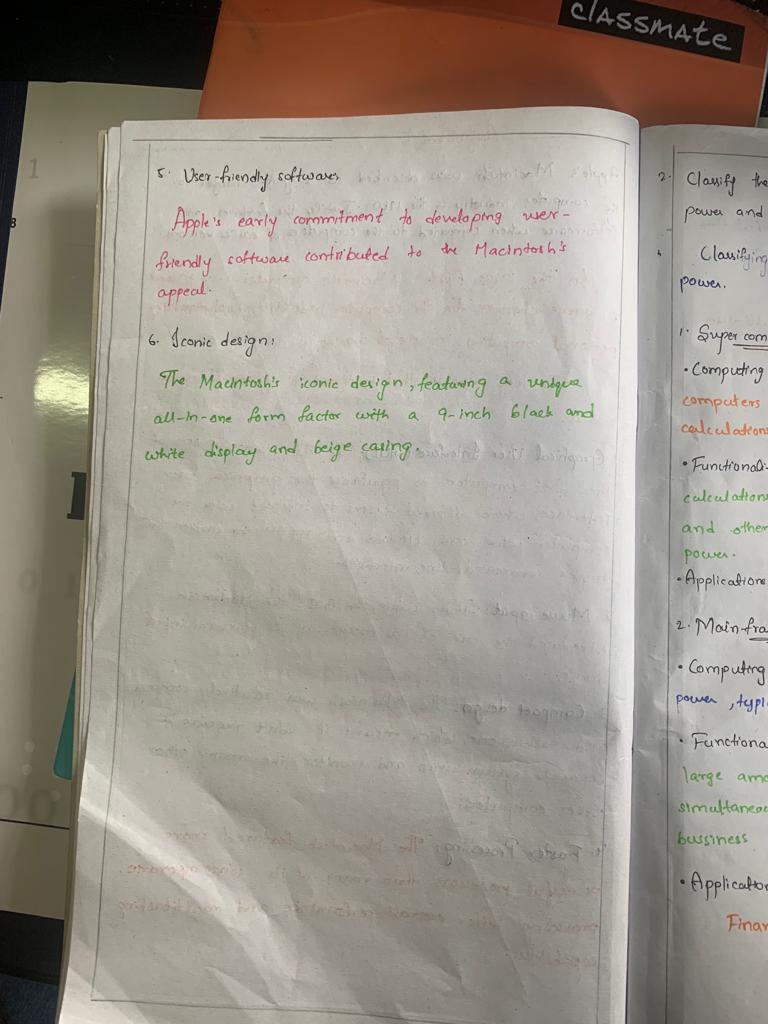 classmate
5. User-friendly software
Apple's early commitment to developing user-
friendly software contributed to the Macintosh's
appeal.
6. Iconic design:
The Macintosh's iconic design, featuring a unique
all-in-one form factor with a 9-inch black and
white display and beige casing.
2. Classify the
power and
Classifying
power.
1. Super com
• Computing
computers
calculations
• Functionali-
calculations
and other
power.
• Applications
2. Main-fra
• Computing
power, typi
• Functiona
large amo
simultaneou
bussiness
• Application
Finan